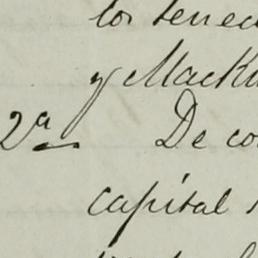 los tened
y MacK
2ª De co
capital